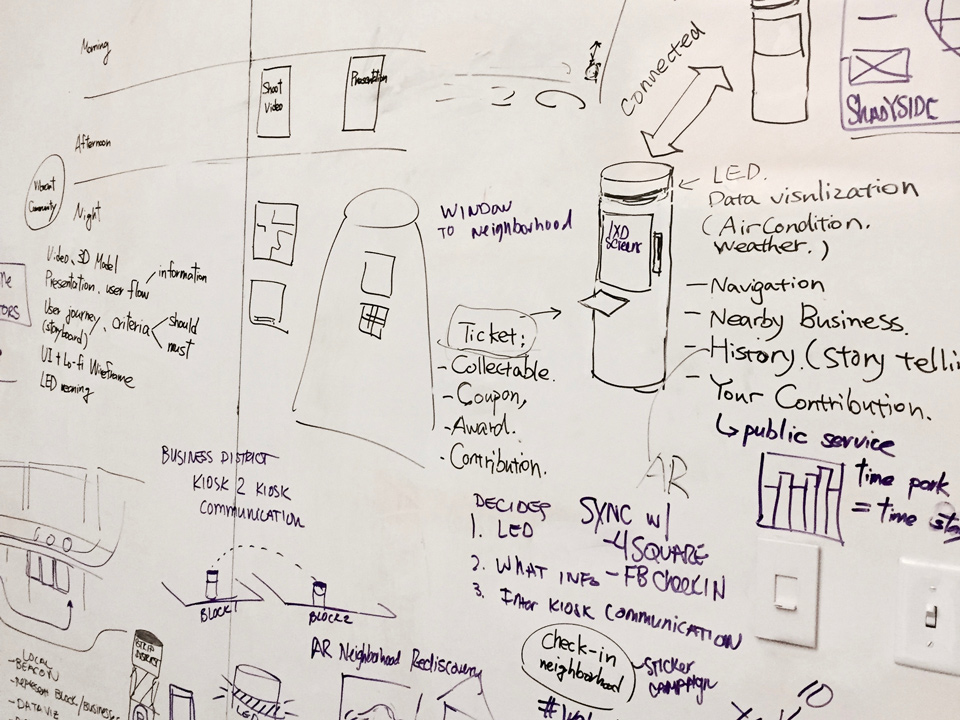 Morning
Shoot
Video
Presentation
Connected
SHADYSIDE
Afternoon
Vibrant
Community
Night
WINDOW
TO NEighborhood
IXD
SCREEN
LED.
Data visulization
(Air Condition.
Weather.)
Video, 3D Model
Presentation. user flow
information
User journey
(storyboard)
criteria
should
must
UI + Lo-fi Wireframe
LED meaning
ORS
Ticket:
- Collectable.
- Coupon,
- Award.
- Contribution.
- Navigation
- Nearby Business.
- History. (Story telli
- Your Contribution.
↳ public service
AR
time park
= time sta
BUSINESS DISTRICT
KIOSK 2 KIOSK
COMMUNICATION
BLOCK 1
BLOCK 2
DECIDES
1. LED
2. WHAT INFO
3. Inter KIOSK COMMUNICATION
SYNC w/
- 4 SQUARE
- FB CHECKIN
AR Neighborhood Rediscovery
check-in
neighborhood
STICKER
CAMPAIGN
LOCAL
BEACON
- REPRESENT BLOCK/BUSINESS
- DATA VIZ
DISTRICT
LED